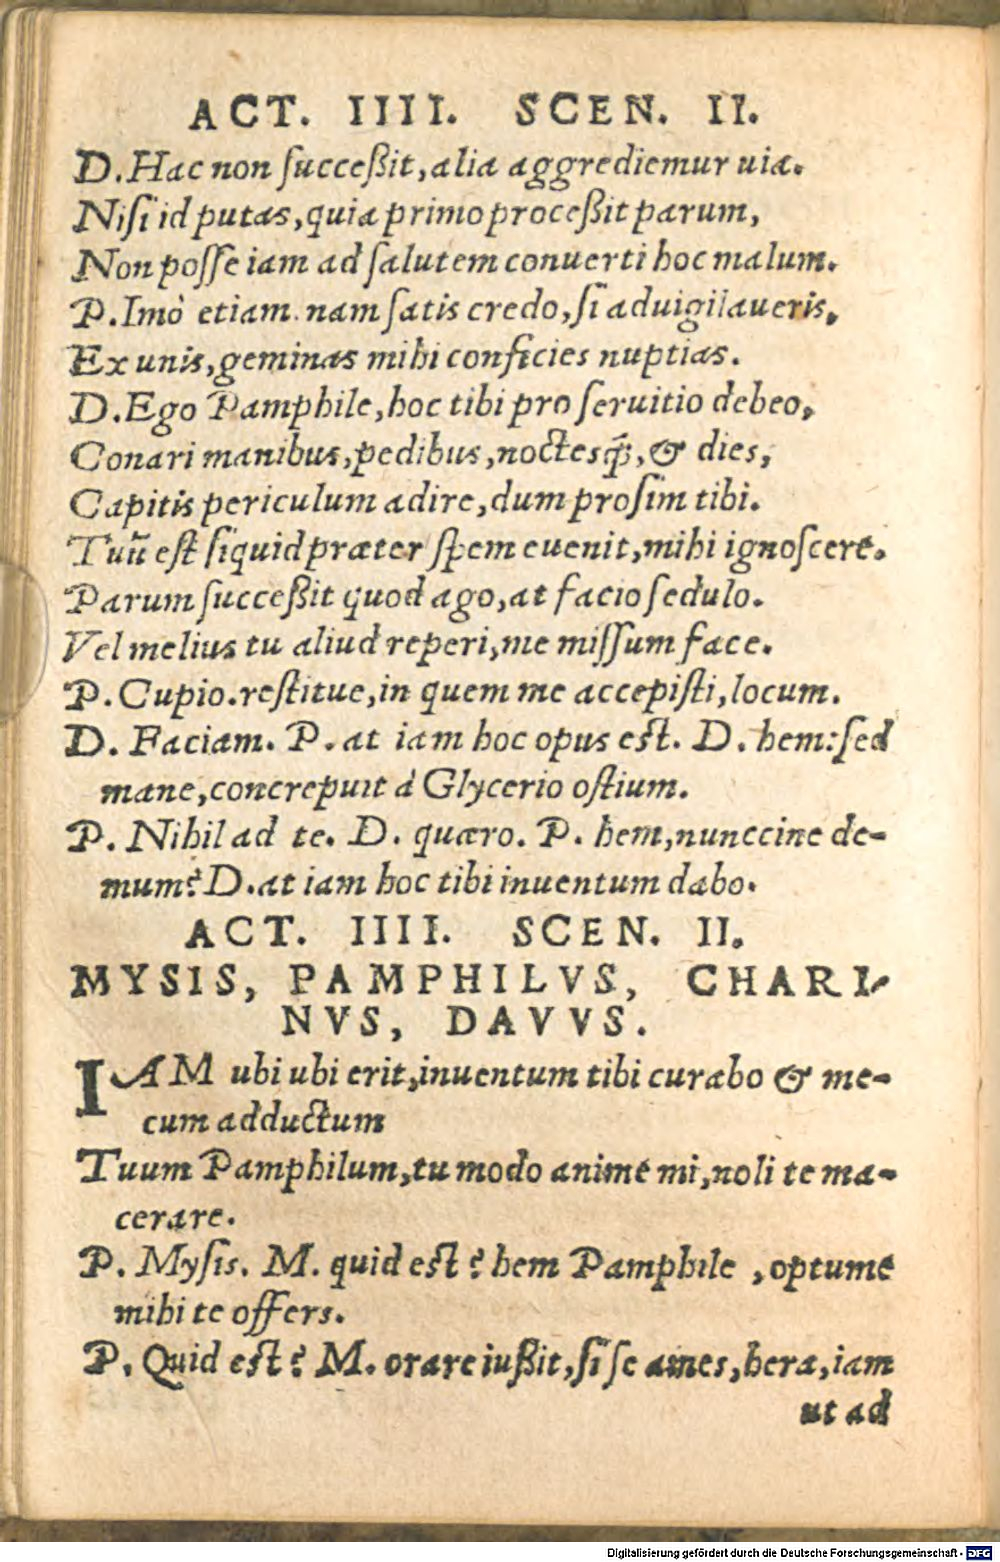 ACT. IIII. SCEN. II.
D. Hac non ſucceßit, alia aggrediemur uia.
Niſi id putas, quia primo proceßit parum,
Non poſſe iam ad ſalutem conuerti hoc malum.
P. Imò etiam. nam ſatis credo, ſi aduigilaueris,
Ex unis, geminas mihi conficies nuptias.
D. Ego Pamphile, hoc tibi pro ſeruitio debeo,
Conari manibus, pedibus, noctesq́;, & dies,
Capitis periculum adire, dum proſim tibi.
Tuũ eſt ſiquid præter ſpem euenit, mihi ignoſcere.
Parum ſucceßit quod ago, at facio ſedulo.
Vel melius tu aliud reperi, me miſſum face.
P. Cupio. reſtitue, in quem me accepiſti, locum.
D. Faciam. P. at iam hoc opus eſt. D. hem: ſed
mane, concrepuit à Glycerio oſtium.
P. Nihil ad te. D. quæro. P. hem, nunccine de-
mum? D. at iam hoc tibi inuentum dabo.
ACT. IIII. SCEN. II.
MYSIS, PAMPHILVS, CHARI-
NVS, DAVVS.
IAM ubi ubi erit, inuentum tibi curabo & me-
cum adductum
Tuum Pamphilum, tu modo anime mi, noli te ma-
cerare.
P. Myſis. M. quid eſt? hem Pamphile, optume
mihi te offers.
P. Quid eſt? M. orare iußit, ſi ſe ames, hera, iam
ut ad
Digitalisierung gefördert durch die Deutsche Forschungsgemeinschaft - DFG